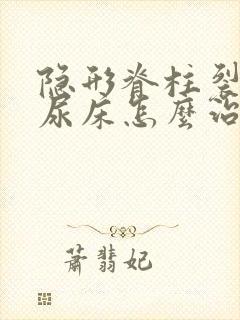 隐形脊柱裂
尿床怎麼治
蕭翡妃